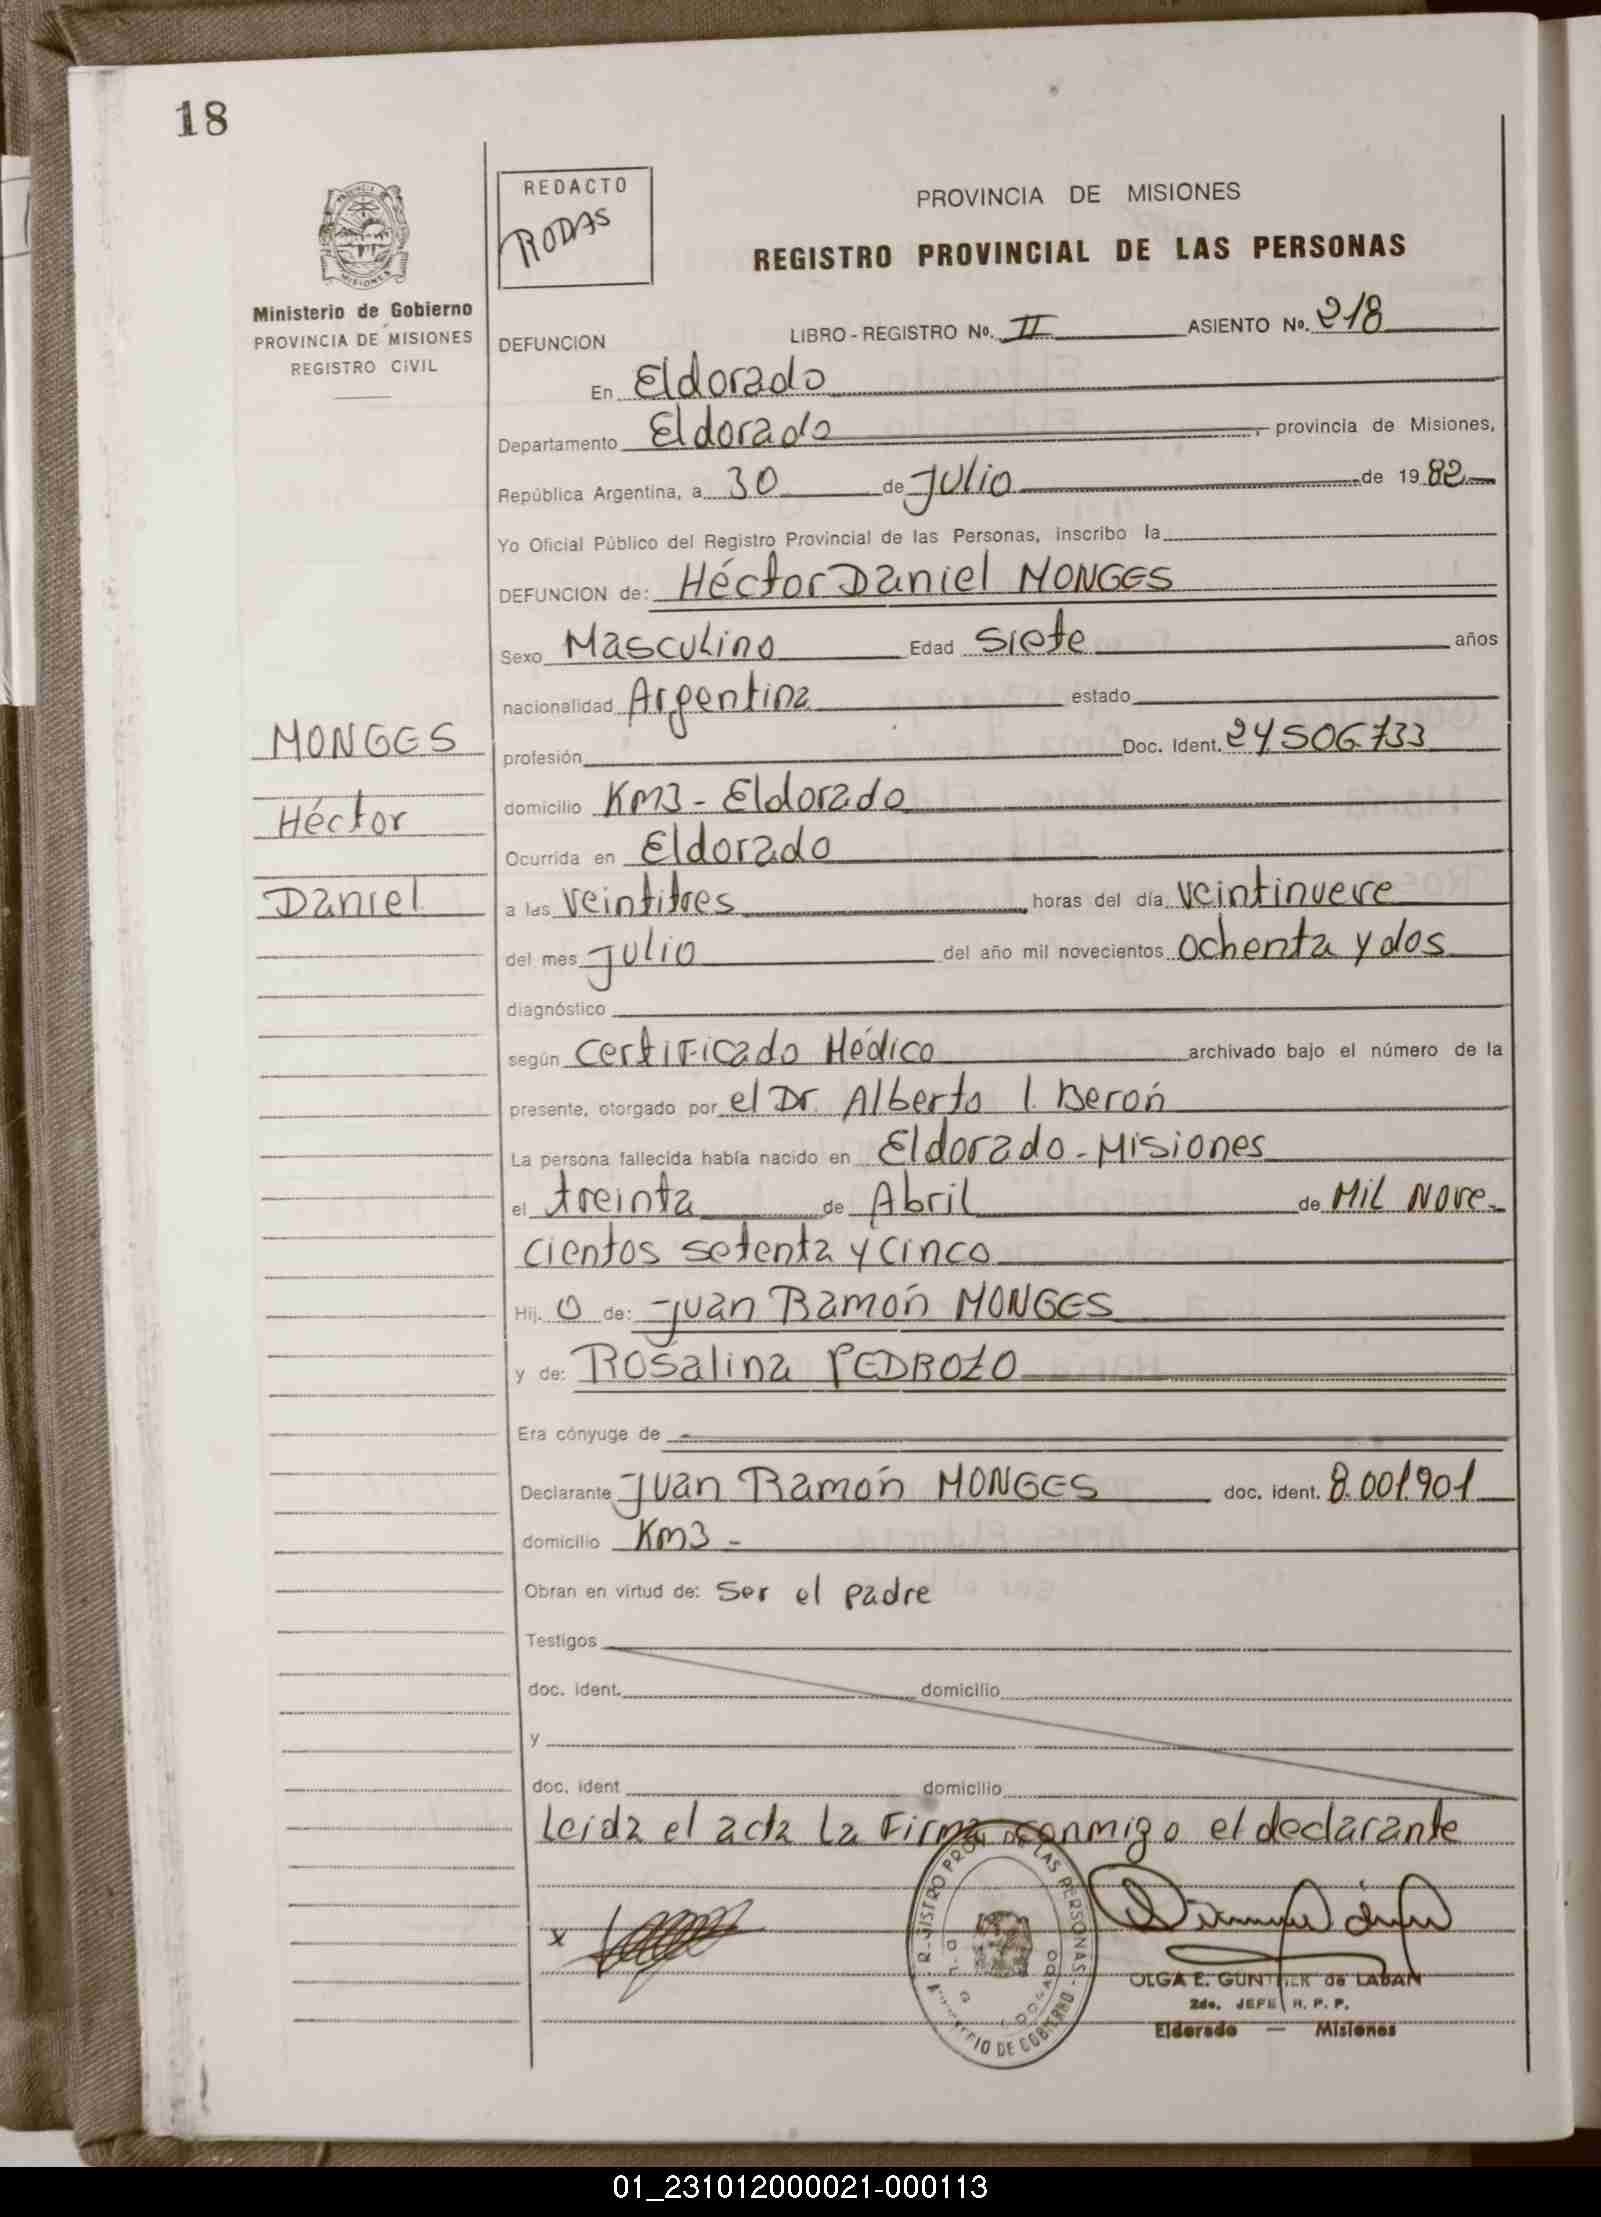 18
REDACTO
RODAS
PROVINCIA DE MISIONES
REGISTRO PROVINCIAL DE LAS PERSONAS
Ministerio de Gobierno
PROVINCIA DE MISIONES
REGISTRO CIVIL
DEFUNCION LIBRO - REGISTRO No. II ASIENTO No. 218
En Eldorado
Departamento Eldorado, provincia de Misiones,
República Argentina, a 30 de Julio de 1982
Yo Oficial Público del Registro Provincial de las Personas, inscribo la
DEFUNCION de: Héctor Daniel MONGES
Sexo Masculino Edad Siete años
nacionalidad Argentina estado
MONGES
profesión Doc. Ident. 24506.733
domicilio Km3 - Eldorado
Héctor
Ocurrida en Eldorado
Daniel
a las veintitres horas del día veintinueve
del mes Julio del año mil novecientos ochenta y dos
diagnóstico
según Certificado Médico archivado bajo el número de la
presente, otorgado por el Dr. Alberto I. Berón
La persona fallecida había nacido en Eldorado - Misiones
el treinta de Abril de Mil Nove-
cientos setenta y cinco
Hij. o de: Juan Ramón MONGES
y de: Rosalina PEDROZO
Era cónyuge de
Declarante Juan Ramón MONGES doc. ident. 8.001.901
domicilio Km3 -
Obran en virtud de: Ser el padre
Testigos
doc. ident. domicilio
y
doc. ident domicilio
Leida el acta la Firma conmigo el declarante
x
REGISTRO PROV. DE LAS PERSONAS - MINISTERIO DE GOBIERNO
OLGA E. GUNTHER de LABAN
2do. JEFE R. P. P.
Eldorado — Misiones
01_231012000021-000113